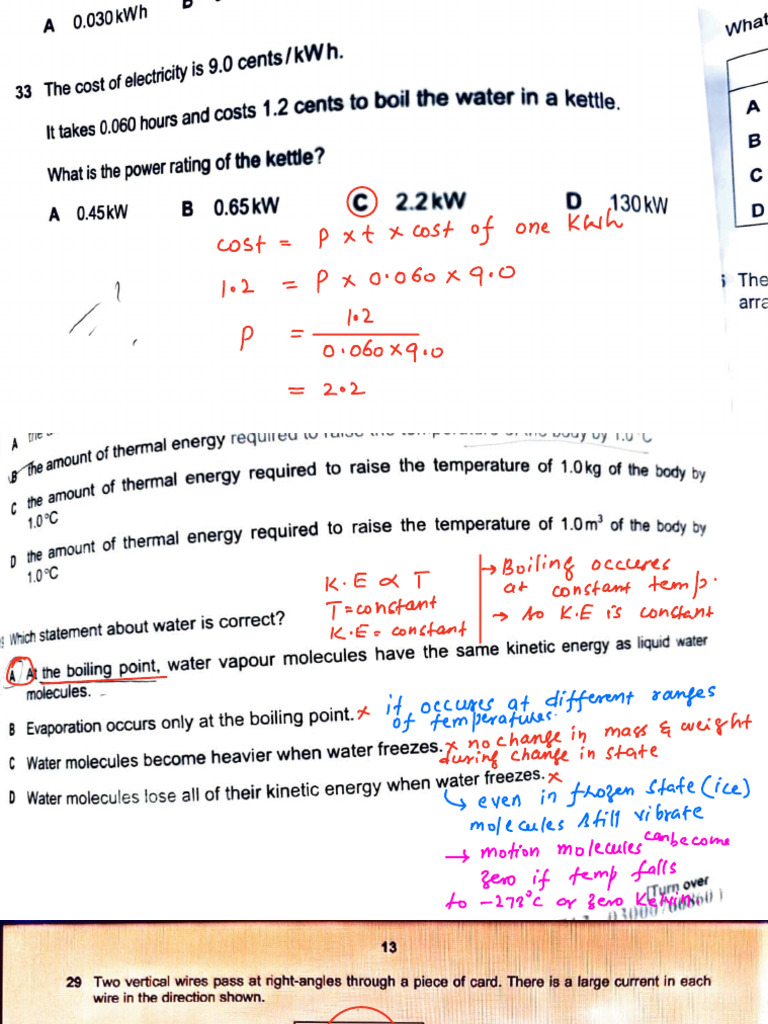 A 0.030 kWh
33 The cost of electricity is 9.0 cents/kWh.
It takes 0.060 hours and costs 1.2 cents to boil the water in a kettle.
What is the power rating of the kettle?
A 0.45 kW B 0.65 kW C 2.2 kW D 130 kW
cost = P x t x cost of one KWh
1.2 = P x 0.060 x 9.0
P = 1.2
0.060 x 9.0
= 2.2
What
A
B
C
D
The
arra
A the
B the amount of thermal energy required to raise the temperature of the body by 1.0 °C
C the amount of thermal energy required to raise the temperature of 1.0 kg of the body by
1.0 °C
D the amount of thermal energy required to raise the temperature of 1.0 m³ of the body by
1.0 °C
K.E ∝ T
T = constant
K.E = constant
→ Boiling occures
at constant temp.
→ so K.E is constant
Which statement about water is correct?
A At the boiling point, water vapour molecules have the same kinetic energy as liquid water
molecules.
B Evaporation occurs only at the boiling point. x it occures at different ranges
of temperatures.
C Water molecules become heavier when water freezes. x no change in mass & weight
during change in state
D Water molecules lose all of their kinetic energy when water freezes. x
↳ even in frozen state (ice)
molecules still vibrate
→ motion molecules can become
zero if temp falls
to -273°C or zero Kelvin
[Turn over
13
29 Two vertical wires pass at right-angles through a piece of card. There is a large current in each
wire in the direction shown.